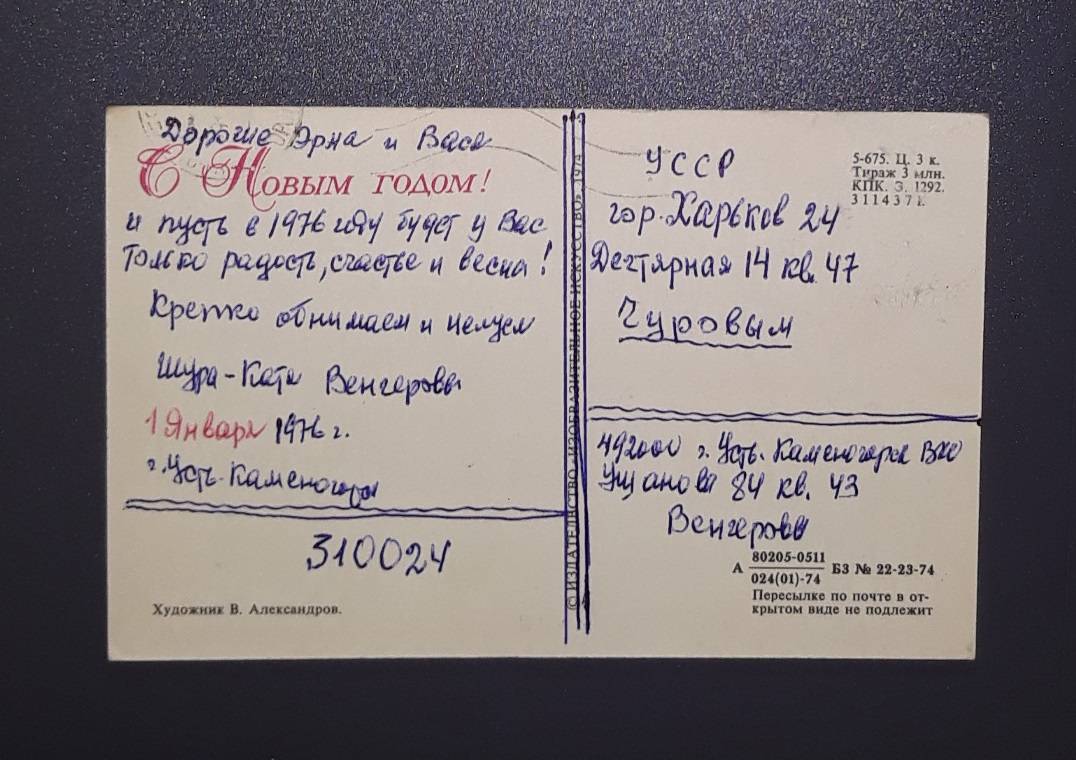 Дорогие Эрна и Вася
С Новым годом!
и пусть в 1976 году будет у Вас
только радость, счастье и весна!
Крепко обнимаем и целуем
Шура-Катя Венгеровы
1 Января 1976 г.
г. Усть-Каменогорск
310024
Художник В. Александров.
© ИЗДАТЕЛЬСТВО «ИЗОБРАЗИТЕЛЬНОЕ ИСКУССТВО» 1974
УССР
гор. Харьков 24
Дегтярная 14 кв. 47
Чуровым
5-675. Ц. 3 к.
Тираж 3 млн.
КПК. Э. 1292.
311437
492000 г. Усть-Каменогорск ВКО
Ушанова 84 кв. 43
Венгеровы
А 80205-0511
024(01)-74 БЗ № 22-23-74
Пересылке по почте в от-
крытом виде не подлежит